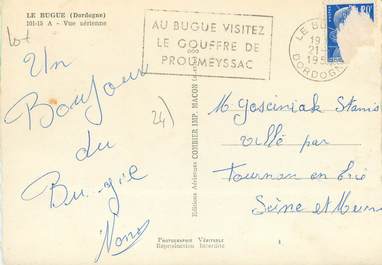 LE BUGUE (Dordogne)
101-15 A - Vue aérienne
AU BUGUE VISITEZ
LE GOUFFRE DE
PROUMEYSSAC
LE BU
19
21-
195
DORDOGN
20F
Lot
Un
Bonjour
du
Bugue
24)
Editions Aériennes COMBIER IMP. MACON
M Gosciniak Stanis
Villé par
Tournan en Brie
Seine et Marne
Photographie Véritable
Reproduction Interdite